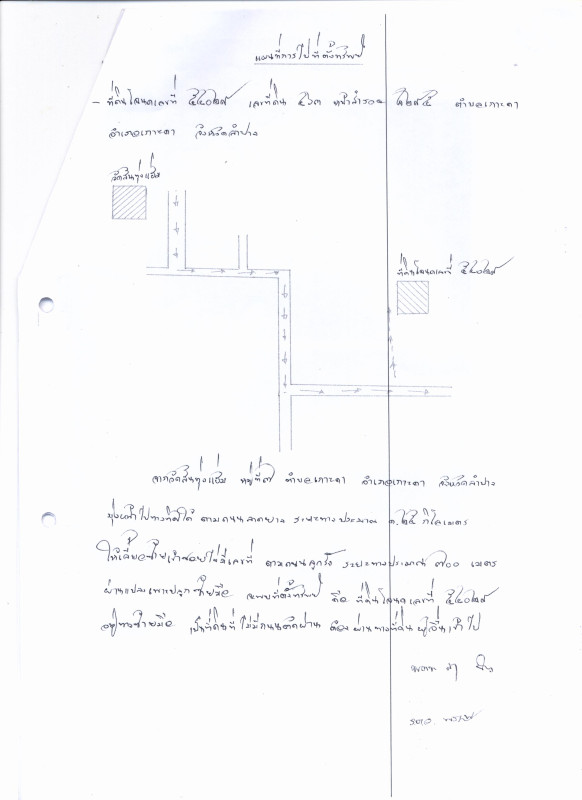 แผนที่การไปที่ตั้งทรัพย์
- ที่ดินโฉนดเลขที่ ๕๔๐๒๙ เลขที่ดิน ๕๖๓ หน้าสำรวจ ๒๕ ตำบลเกาะคา
อำเภอเกาะคา จังหวัดลำปาง
วัดสันทุ่งแฮ่ม
ที่ดินโฉนดเลขที่ ๕๔๐๒๙
จากวัดสันทุ่งแฮ่ม หมู่ที่ ตำบลเกาะคา อำเภอเกาะคา จังหวัดลำปาง
มุ่งหน้าไปทางทิศใต้ ตามถนนลาดยาง ระยะทางประมาณ ๑.๒๕ กิโลเมตร
ให้เลี้ยวซ้ายเข้าซอยไม่มีเลขที่ ตามถนนลูกรัง ระยะทางประมาณ ๗๐๐ เมตร
ผ่านแปลงเพาะปลูก ซ้ายมือ จะพบที่ตั้งทรัพย์ คือ ที่ดินโฉนดเลขที่ ๕๔๐๒๙
อยู่ทางซ้ายมือ เป็นที่ดินที่ไม่มีถนนตัดผ่าน ต้องผ่านทางที่ดินผู้อื่นเข้าไป